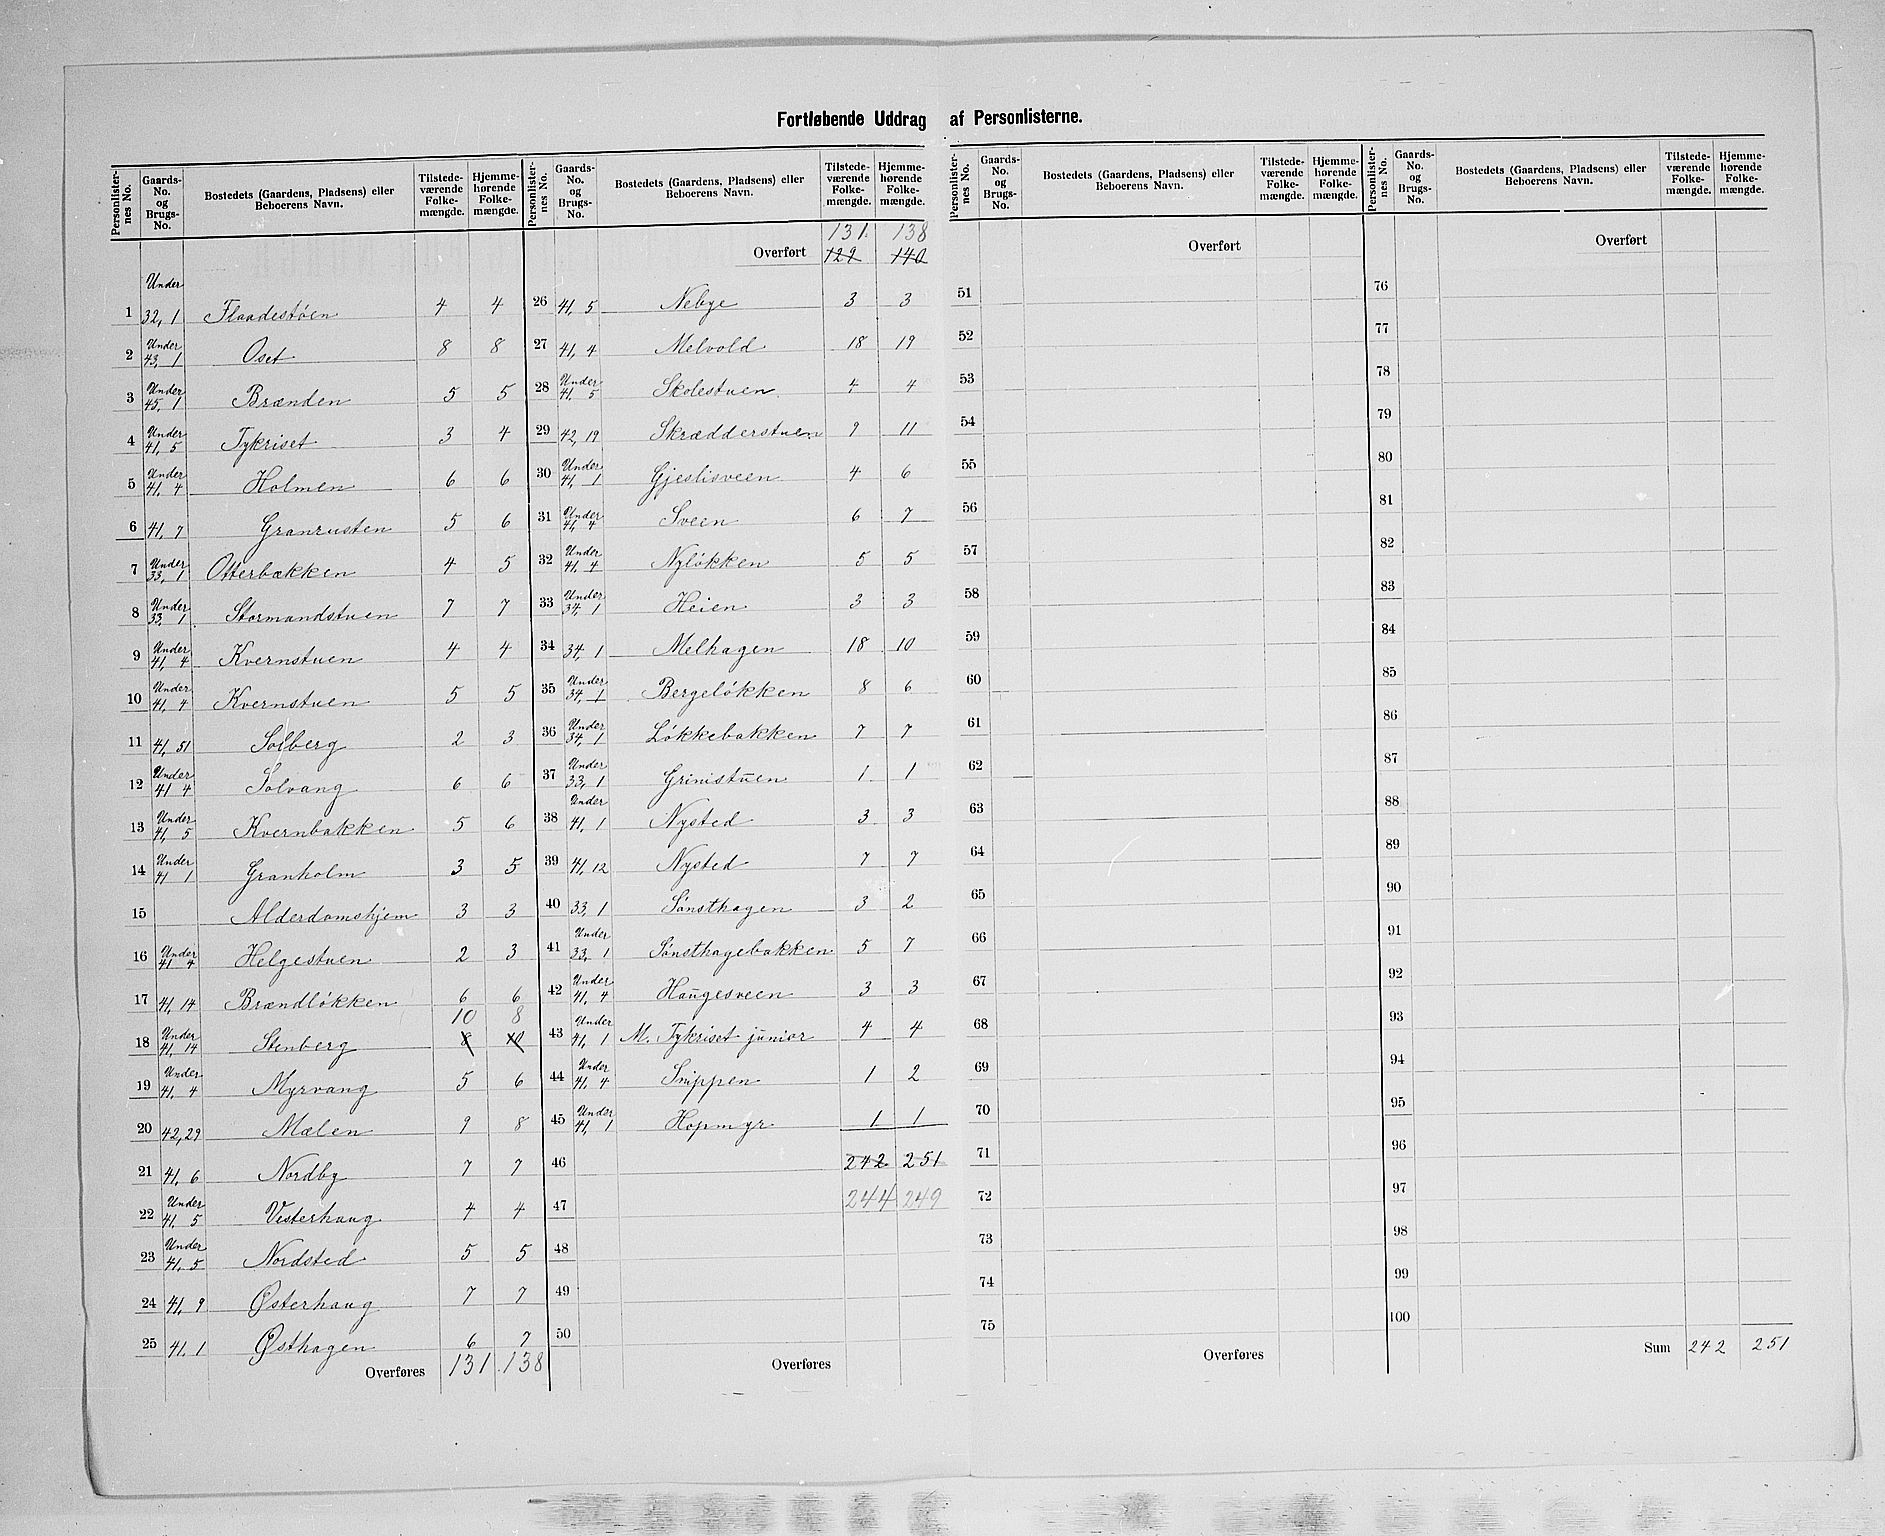 Fortløbende Uddrag af Personlisterne.
Personlister-nes No. | Gaards-No. og Brugs-No. | Bostedets (Gaardens, Pladsens) eller Beboerens Navn. | Tilstede-værende Folke-mængde. | Hjemme-hørende Folke-mængde.
1 Under 32, 1 Flaadestøen 4 4
2 Under 43, 1 Oset 8 8
3 Under 45, 1 Brænden 5 5
4 Under 41, 5 Tykriset 3 4
5 Under 41, 4 Holmen 6 6
6 41, 7 Granrusten 5 6
7 Under 33, 1 Otterbækken 4 5
8 Under 33, 1 Stormandstuen 7 7
9 Under 41, 4 Kvernstuen 4 4
10 Under 41, 4 Kvernstuen 5 5
11 41, 51 Solberg 2 3
12 Under 41 4 Solvang 6 6
13 Under 41, 5 Kvernbakken 5 6
14 Under 41 1 Granholm 3 5
15 Alderdomshjem 3 3
16 Under 41 4 Helgestuen 2 3
17 41, 14 Brændløkken 6 6
10 8
18 Under 41, 14 Stenberg 8 10
19 Under 41, 4 Myrvang 5 6
20 42, 29 Mælen 9 8
21 41, 6 Nordby 7 7
22 Under 41, 5 Vesterhaug 4 4
23 Under 41, 5 Nordsted 5 5
24 41, 9 Østerhaug 7 7
25 41, 1 Østhagen 6 7
Overføres 131 138
Personlister-nes No. | Gaards-No. og Brugs-No. | Bostedets (Gaardens, Pladsens) eller Beboerens Navn. | Tilstede-værende Folke-mængde. | Hjemme-hørende Folke-mængde.
131 138
Overført 129 140
26 41, 5 Nebye 3 3
27 41, 4 Melvold 18 19
28 Under 41, 5 Skolestuen 4 4
29 42, 19 Skrædderstuen 9 11
30 Under 41, 1 Gjeslisveen 4 6
31 Under 41, 4 Sveen 6 7
32 Under 41, 4 Nyløkken 5 5
33 Under 34, 1 Heien 3 3
34 34, 1 Melhagen 18 10
35 Under 34, 1 Bergeløkken 8 6
36 Under 34, 1 Løkkebakken 7 7
37 Under 33, 1 Grinistuen 1 1
38 Under 41, 1 Nysted 3 3
39 41, 12 Nysted 7 7
40 33, 1 Sønsthagen 3 2
41 Under 33, 1 Sønsthagebakken 5 7
42 Under 41, 4 Haugesveen 3 3
43 Under 41, 1 M. Tykriset junior 4 4
44 Under 41, 4 Snippen 1 2
45 Under 41, 1 Hopmyr 1 1
46 242 251
47 244 249
48
49
50
Overføres
Personlister-nes No. | Gaards-No. og Brugs-No. | Bostedets (Gaardens, Pladsens) eller Beboerens Navn. | Tilstede-værende Folke-mængde. | Hjemme-hørende Folke-mængde.
Overført
51
52
53
54
55
56
57
58
59
60
61
62
63
64
65
66
67
68
69
70
71
72
73
74
75
Overføres
Personlister-nes No. | Gaards-No. og Brugs-No. | Bostedets (Gaardens, Pladsens) eller Beboerens Navn. | Tilstede-værende Folke-mængde. | Hjemme-hørende Folke-mængde.
Overført
76
77
78
79
80
81
82
83
84
85
86
87
88
89
90
91
92
93
94
95
96
97
98
99
100
Sum 242 251